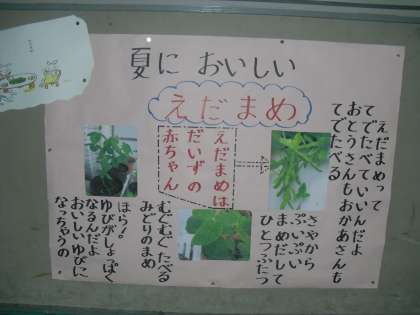 夏に おいしい
えだまめ
えだまめって
てでたべていいんだよ
おとうさんもおかあさんも
てでたべる
えだまめは
だいずの
赤ちゃん
さやから
ぷいぷい
まめだして
ひとつふたつ
むぐむぐ たべる
みどりのまめ
ほら！
ゆびがしょっぱく
なるんだよ
おいしい ゆびに
なっちゃうの